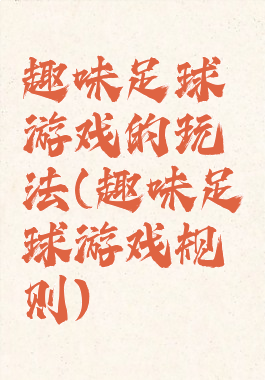 趣味足球
游戏的玩
法(趣味足
球游戏规
则)